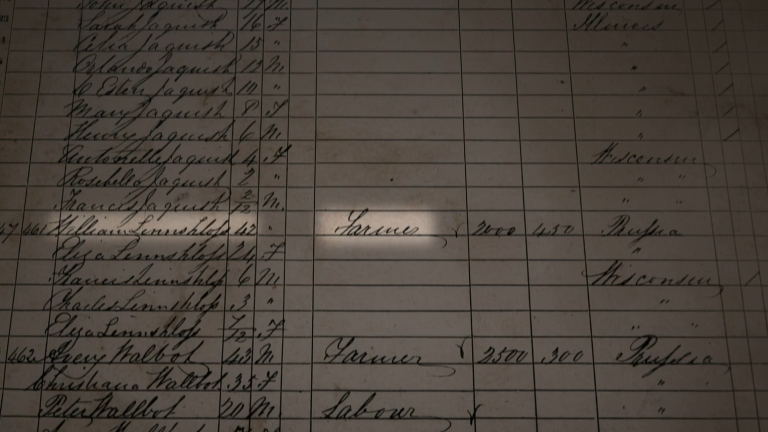 John Jaquish 17 M. Wisconsin
Sarah Jaquish 16 F Illinois
Celia Jaquish 15 " "
Orlando Jaquish 13 M "
C Esten Jaquish 10 " "
Mary Jaquish 8 F "
Henry Jaquish 6 M "
Antonette Jaquish 4 F Wisconsin
Rosebella Jaquish 2 " " "
Francis Jaquish 2/12 M. " "
461 William Linnshloss 42 " Farmer 2000 450 Prussia
Eliza Linnshloss 24 F "
Francis Linnshloss 6 M Wisconsin
Charles Linnshloss 3 " "
Eliza Linnshloss 7/12 F " "
462 Walbot 43 M Farmer 2500 300 Prussia
Christiana Wallbot 35 F "
Peter Wallbot 20 M Labour "